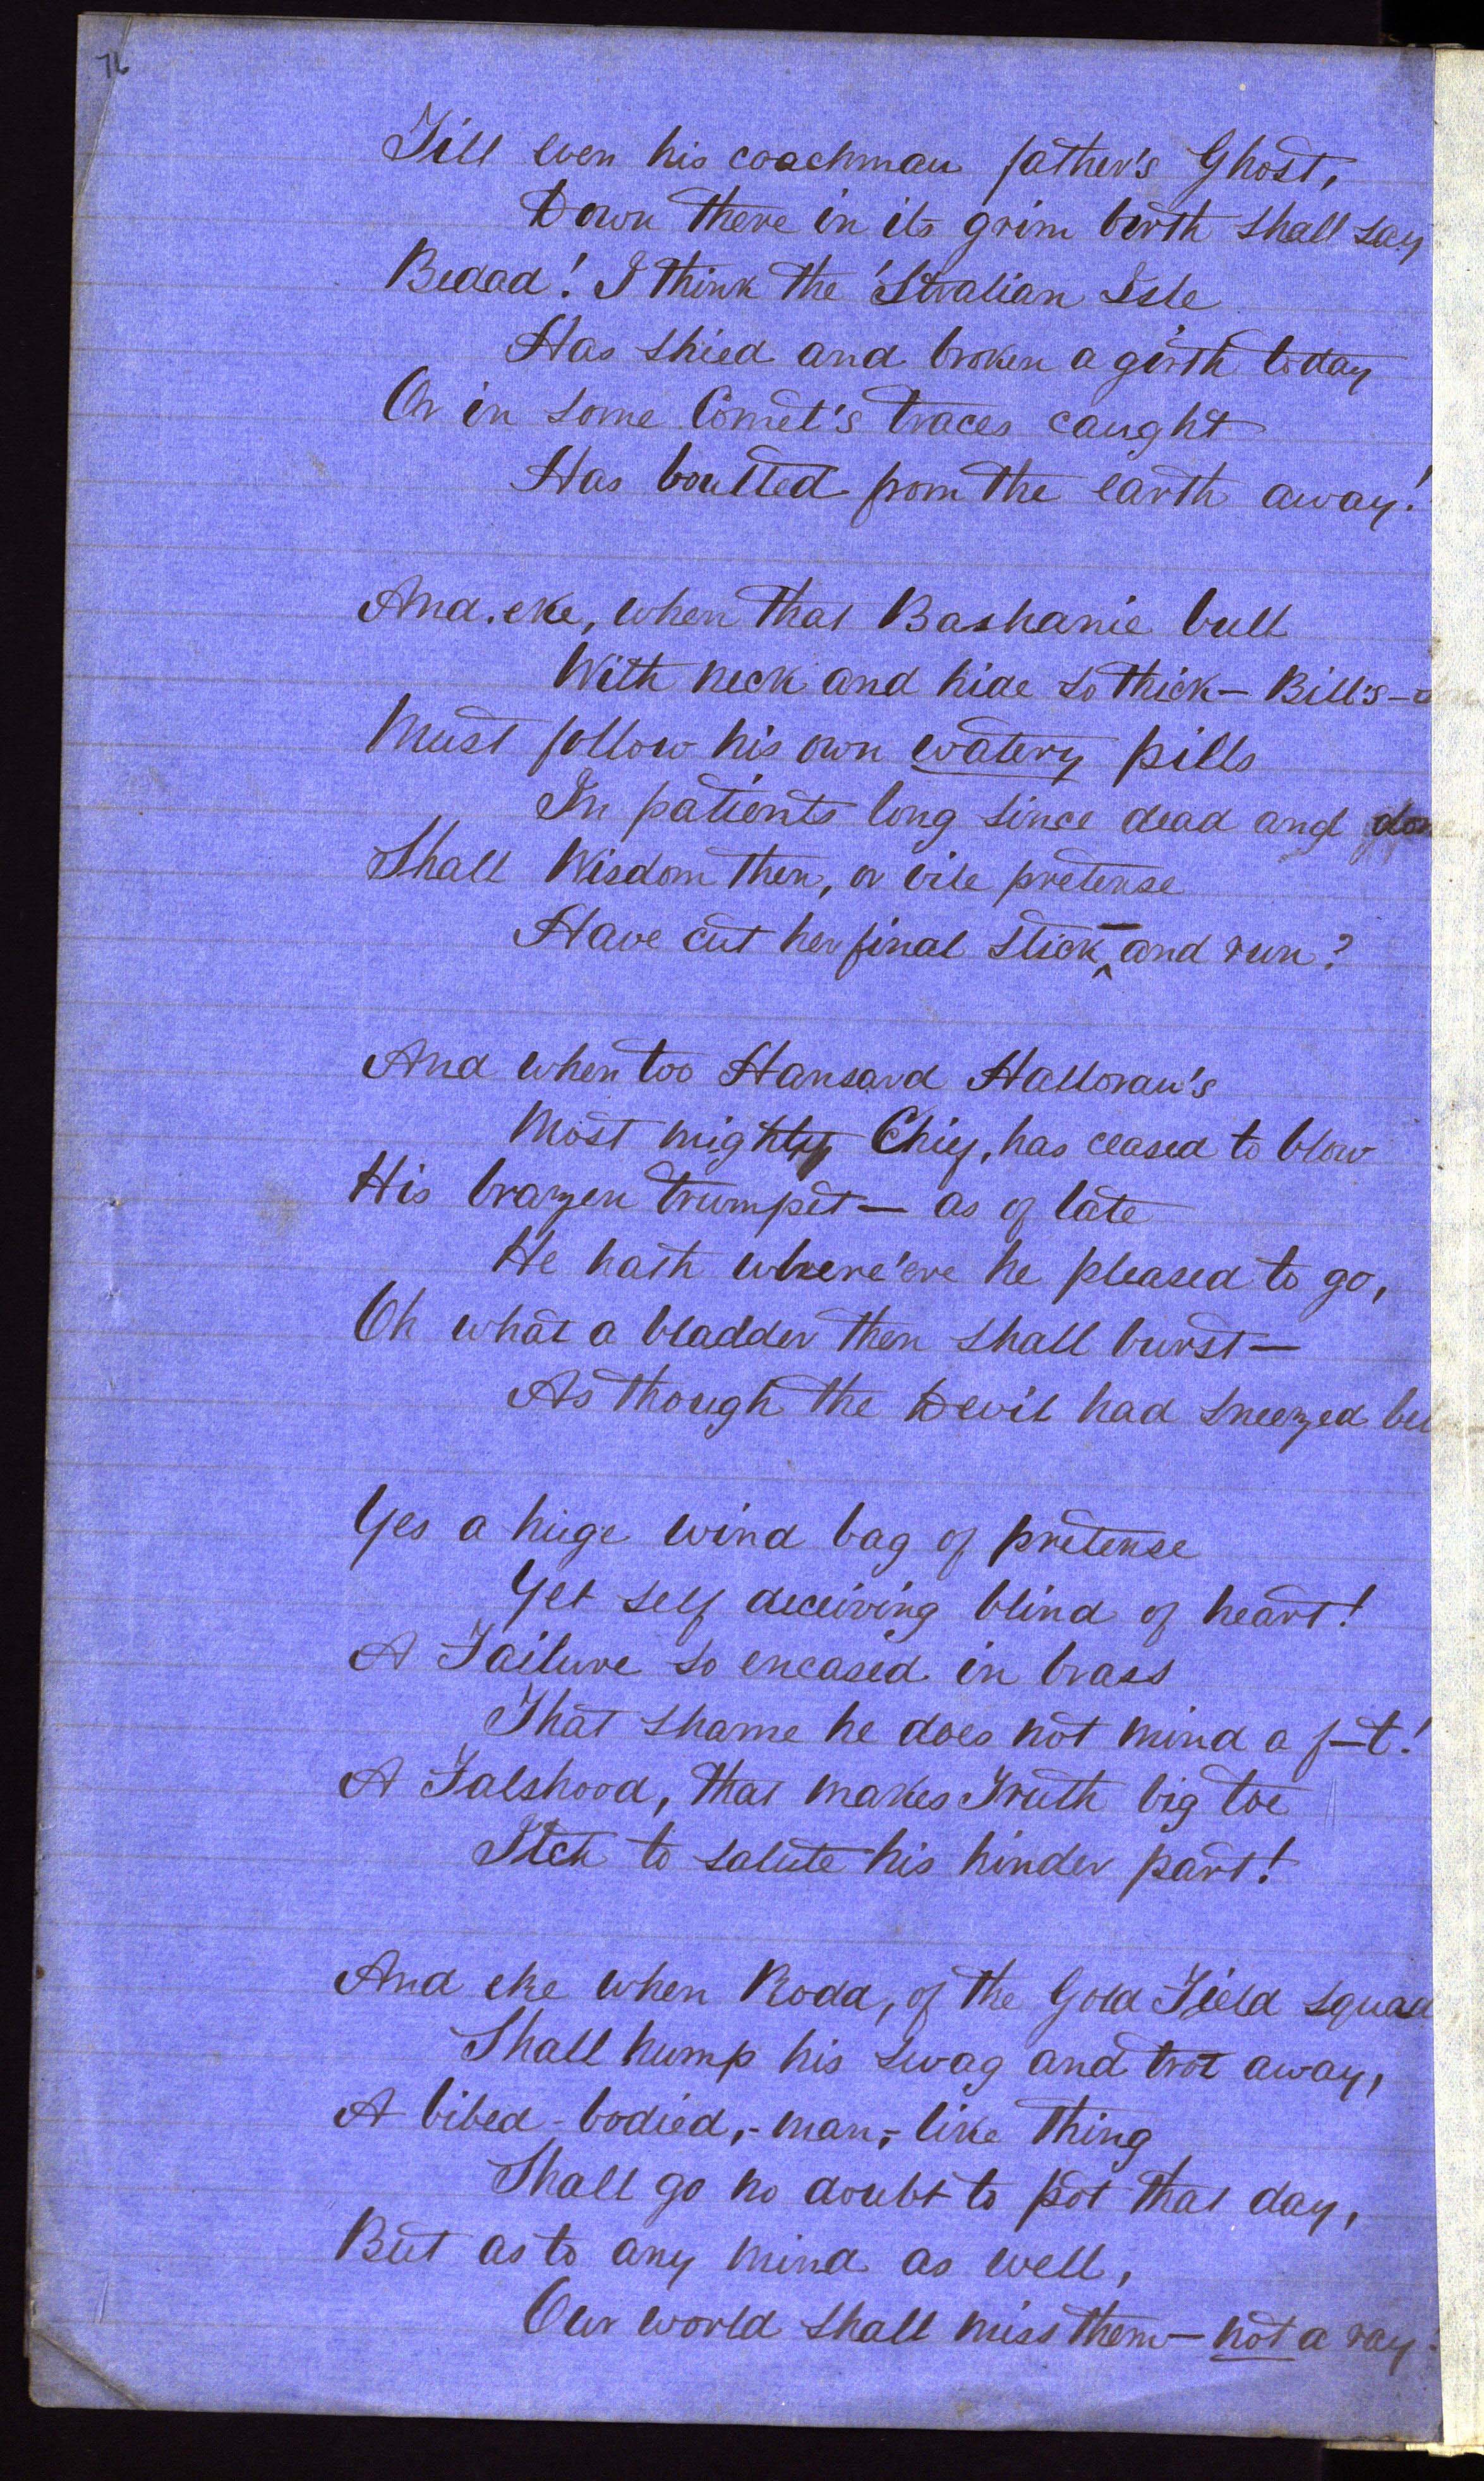 76
Till even his coachman father's Ghost,
Down there in its grim berth shall say
Bedad! I think the 'Stralian Isle
Has shied and broken a girth today
Or in some Comet's traces caught
Has boulted from the earth away!
And eke, when that Bashanie bull
With neck and hide so thick — Bill's —
Must follow his own watery pills
In patients long since dead and
Shall Wisdom then, or vile pretense
Have cut her final stick — and run?
And when too Hansard Halloran's
Most mighty Chief, has ceased to blow
His brazen trumpet — as of late
He hath where'ere he pleased to go,
Oh what a bladder then shall burst —
As though the Devil had sneezed
Yes a huge wind bag of pretense
Yet self deceiving blind of heart!
A Failure so encased in brass
That shame he does not mind a f—t!
A Falshood, that makes Truth big toe
Itch to salute his hinder part!
And eke when Rodd, of the Gold Field squad
Shall hump his swag and trot away,
A bibed-bodied,-man,-like thing
Shall go no doubt to pot that day,
But as to any mind as well,
Our world shall miss them — not a ray